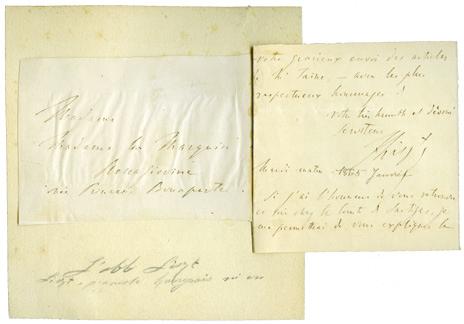 Madame
Madame la Marquise
Roccagiovine
née Princesse Bonaparte.
L'abb Liszt
Liszt, pianiste hongrois né en
votre gracieux envoi des articles
de Mr Taine, — avec les plus
respectueux hommages!
Votre très humble et dévoué
serviteur
FLiszt
Mardi matin Janvier
Si j'ai l'honneur de vous retrouver
ce soir chez le Comte de, je
me permettrai de vous expliquer le